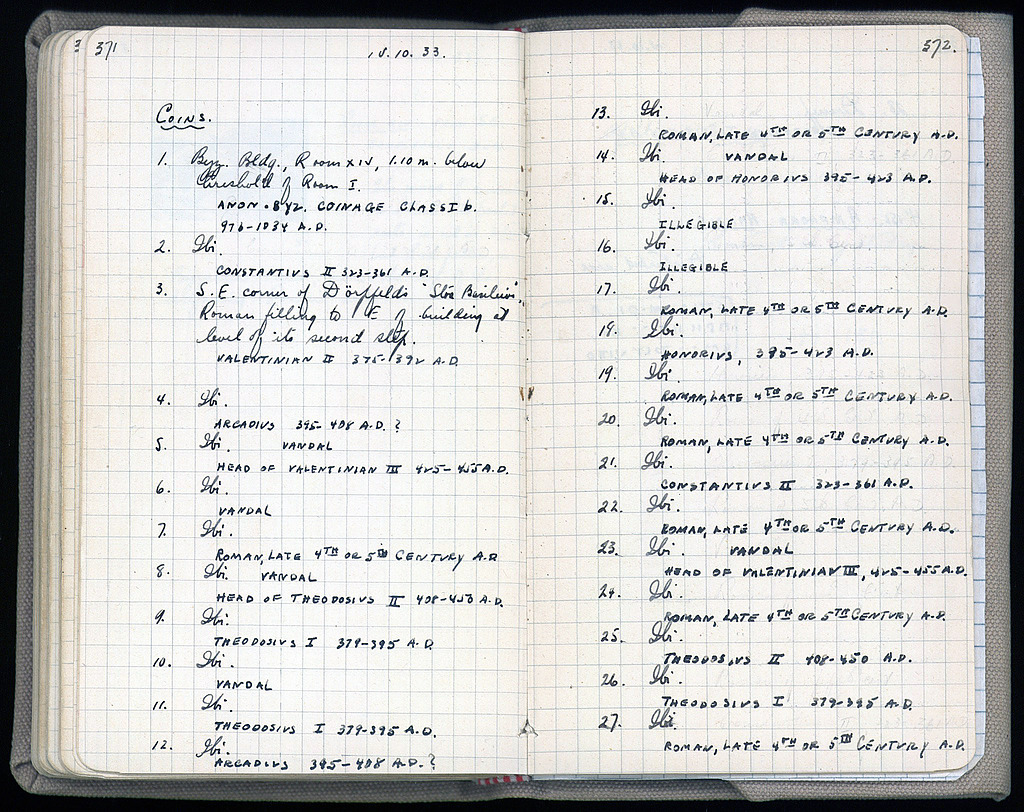 371
18.10.33.
COINS.
1. Byz. Bldg., Room XIV, 1.10 m. below
threshold of Room I.
ANON. BYZ. COINAGE CLASS I b.
976-1034 A.D.
2. Ibi.
CONSTANTIUS II 323-361 A.D.
3. S.E. corner of Dörpfeld's "Stoa Basileios",
Roman filling to E of building at
level of its second step.
VALENTINIAN II 375-392 A.D.
4. Ibi.
ARCADIUS 395-408 A.D.?
5. Ibi. VANDAL
HEAD OF VALENTINIAN III 425-455 A.D.
6. Ibi.
VANDAL
7. Ibi.
ROMAN, LATE 4TH OR 5TH CENTURY A.D
8. Ibi. VANDAL
HEAD OF THEODOSIUS II 408-450 A.D.
9. Ibi.
THEODOSIUS I 379-395 A.D.
10. Ibi.
VANDAL
11. Ibi.
THEODOSIUS I 379-395 A.D.
12. Ibi.
ARCADIUS 395-408 A.D.?
372.
13. Ibi.
ROMAN, LATE 4TH OR 5TH CENTURY A.D.
14. Ibi. VANDAL
HEAD OF HONORIUS 395-423 A.D.
15. Ibi.
ILLEGIBLE
16. Ibi.
ILLEGIBLE
17. Ibi.
ROMAN, LATE 4TH OR 5TH CENTURY A.D.
19. Ibi.
HONORIUS, 395-423 A.D.
19. Ibi.
ROMAN, LATE 4TH OR 5TH CENTURY A.D.
20. Ibi.
ROMAN, LATE 4TH OR 5TH CENTURY A.D.
21. Ibi.
CONSTANTIUS II 323-361 A.D.
22. Ibi.
ROMAN, LATE 4TH OR 5TH CENTURY A.D.
23. Ibi. VANDAL
HEAD OF VALENTINIAN III, 425-455 A.D.
24. Ibi.
ROMAN, LATE 4TH OR 5TH CENTURY A.D.
25. Ibi.
THEODOSIUS II 408-450 A.D.
26. Ibi.
THEODOSIUS I 379-395 A.D.
27. Ibi.
ROMAN, LATE 4TH OR 5TH CENTURY A.D.